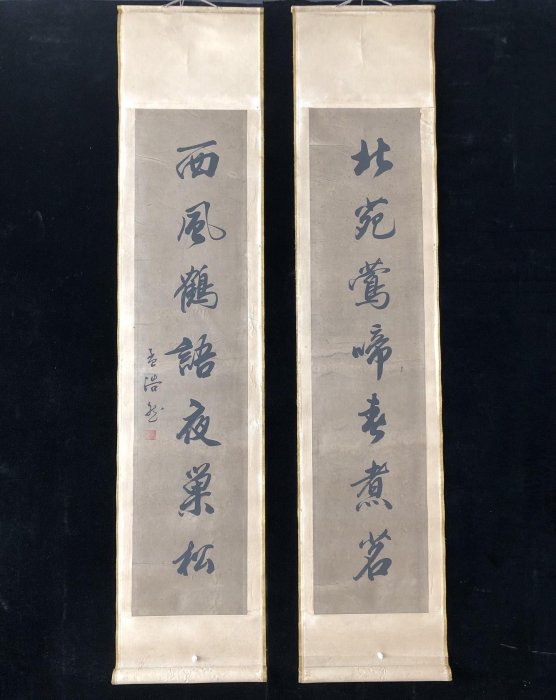 北苑莺啼春煮茗
西風鶴語夜巢松
孟浩然